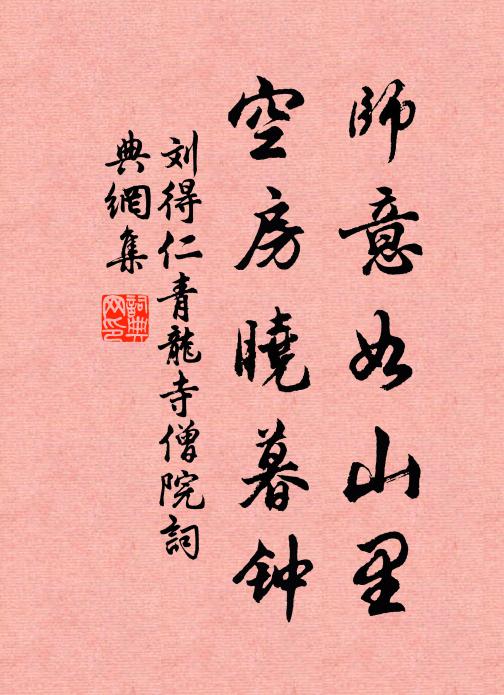 師意如山里
空房曉暮钟
刘得仁青龍寺僧院詞
典網集
詞典網印